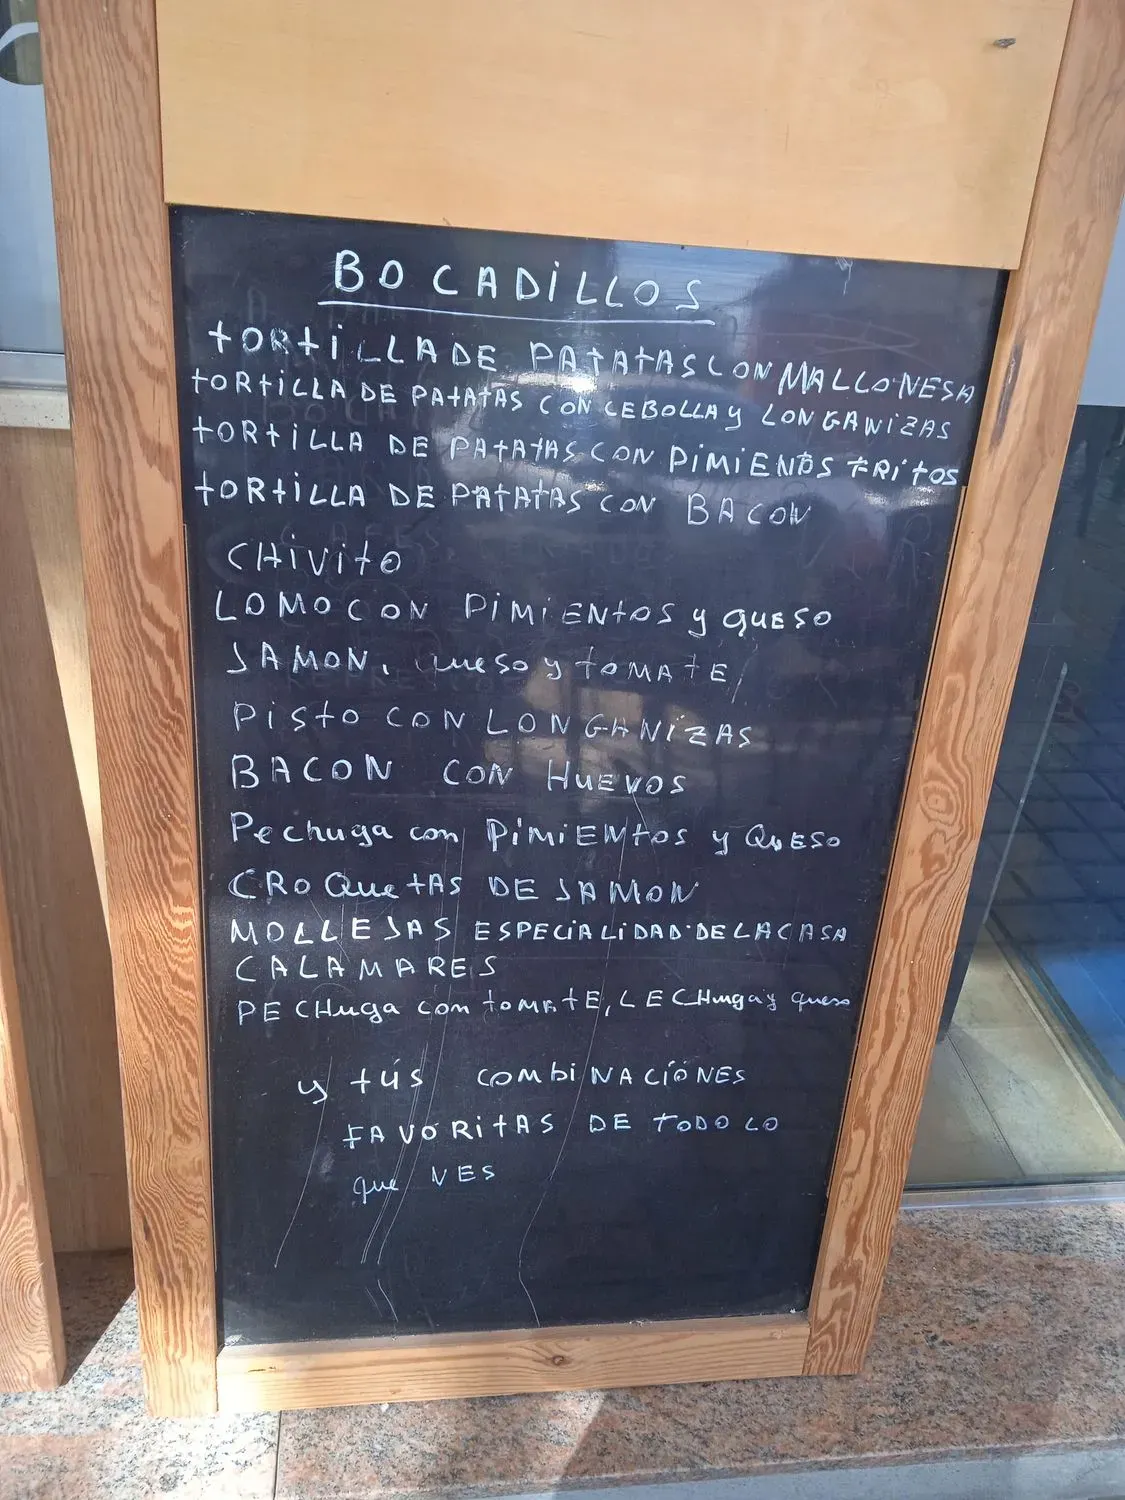 BOCADILLOS
TORTILLA DE PATATAS CON MALLONESA
TORTILLA DE PATATAS CON CEBOLLA y LONGANIZAS
TORTILLA DE PATATAS CON PIMIENTOS FRITOS
TORTILLA DE PATATAS CON BACON
CHIVITO
LOMO CON PIMIENTOS y QUESO
JAMON, queso y TOMATE
PISTO CON LONGANIZAS
BACON CON HUEVOS
Pechuga con PIMIENTOS y QUESO
CROQUETAS DE JAMON
MOLLEJAS ESPECIALIDAD DE LA CASA
CALAMARES
PECHUGA con TOMATE, LECHUGA y queso
y TÚS COMBINACIÓNES
FAVORITAS DE TODO LO
que VES